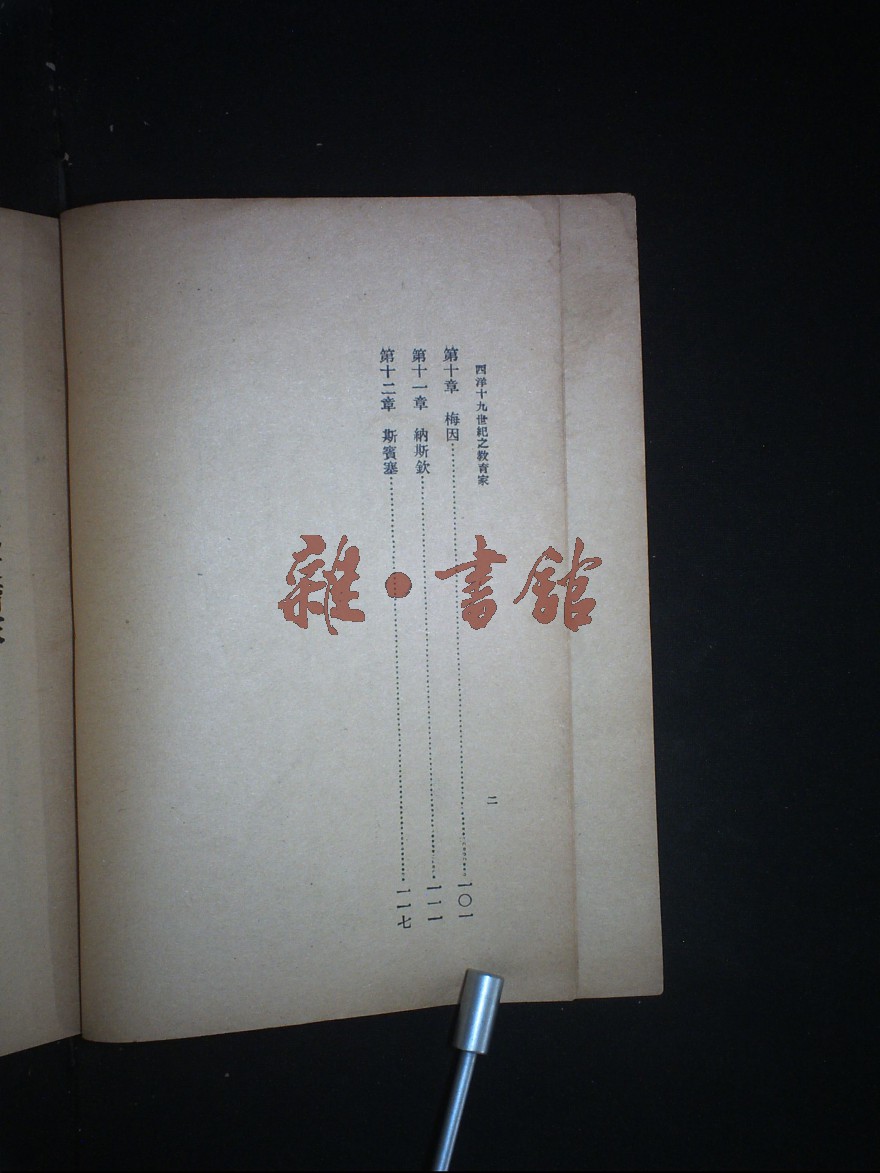 西洋十九世紀之教育家
二
第十章　梅因……一〇一
第十一章　納斯欽……一一一
第十二章　斯賓塞……一一七
雜·書館